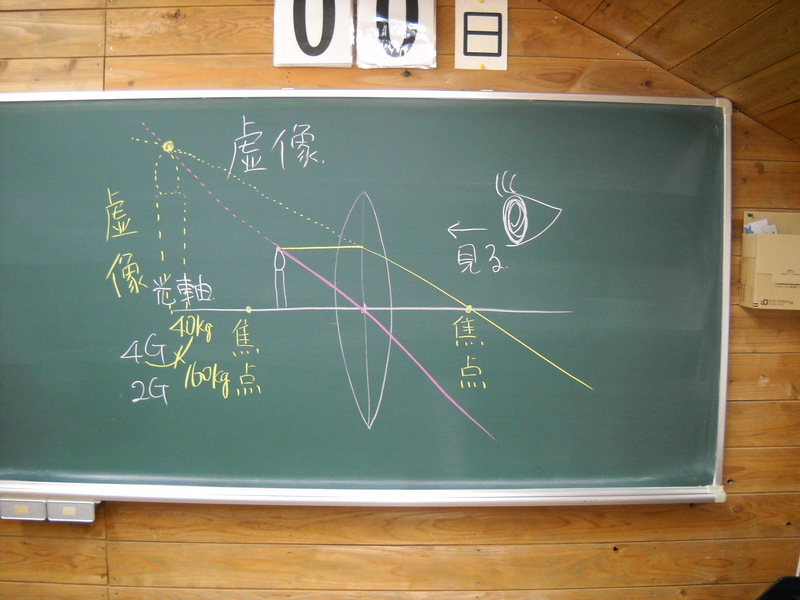 00日
虚像
虚像
見る
光軸
焦点
焦点
40kg
4G
160kg
2G